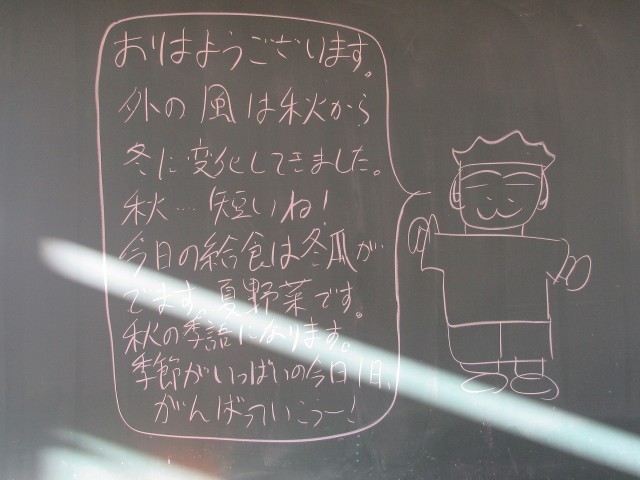 おはようございます。
外の風は秋から
冬に変化してきました。
秋…短いね!
今日の給食は冬瓜が
でます。夏野菜です。
秋の季語になります。
季節がいっぱいの今日1日、
がんばっていこうー!